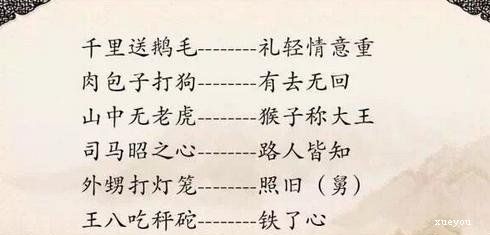 千里送鹅毛--------礼轻情意重
肉包子打狗--------有去无回
山中无老虎--------猴子称大王
司马昭之心--------路人皆知
外甥打灯笼--------照旧（舅）
王八吃秤砣--------铁了心
xueyou